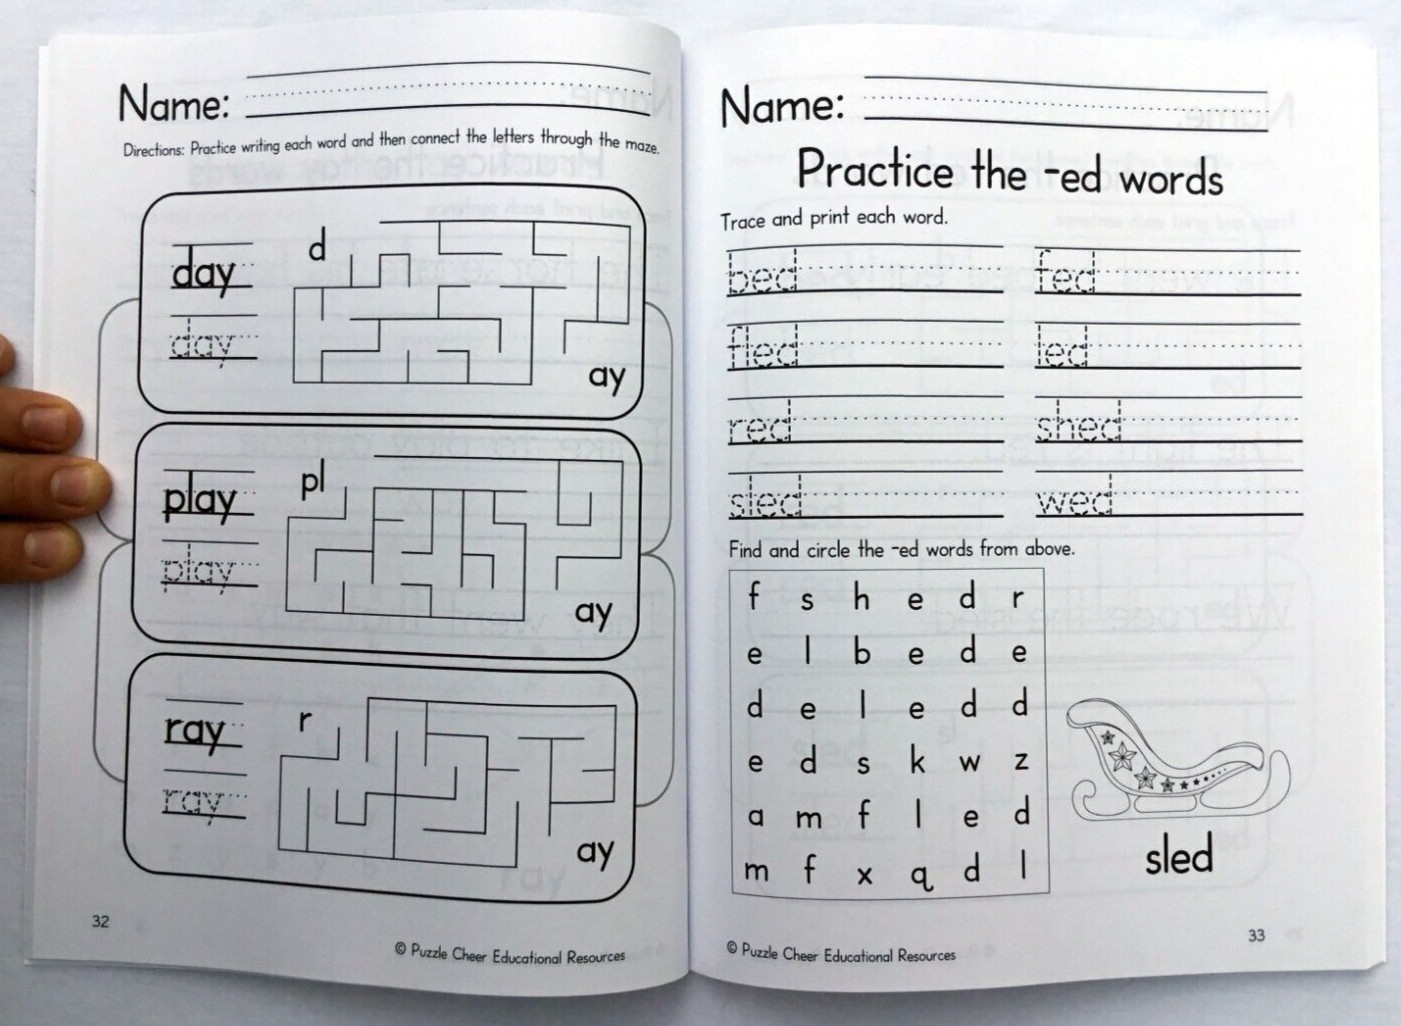 Name:
Directions: Practice writing each word and then connect the letters through the maze.
day
day
d
ay
play
play
pl
ay
ray
ray
r
ay
32
© Puzzle Cheer Educational Resources
Name:
Practice the -ed words
Trace and print each word.
bed fed
fled led
red shed
sled wed
Find and circle the -ed words from above.
f s h e d r
e l b e d e
d e l e d d
e d s k w z
a m f l e d
m f x q d l
sled
33
© Puzzle Cheer Educational Resources